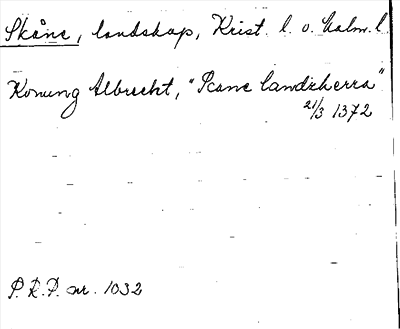 Skåne, landskap, Krist. l. o. Malm. l.
Konung Albrecht, "Scane landzherra"
21/3 1372
P. R. P. nr. 1032